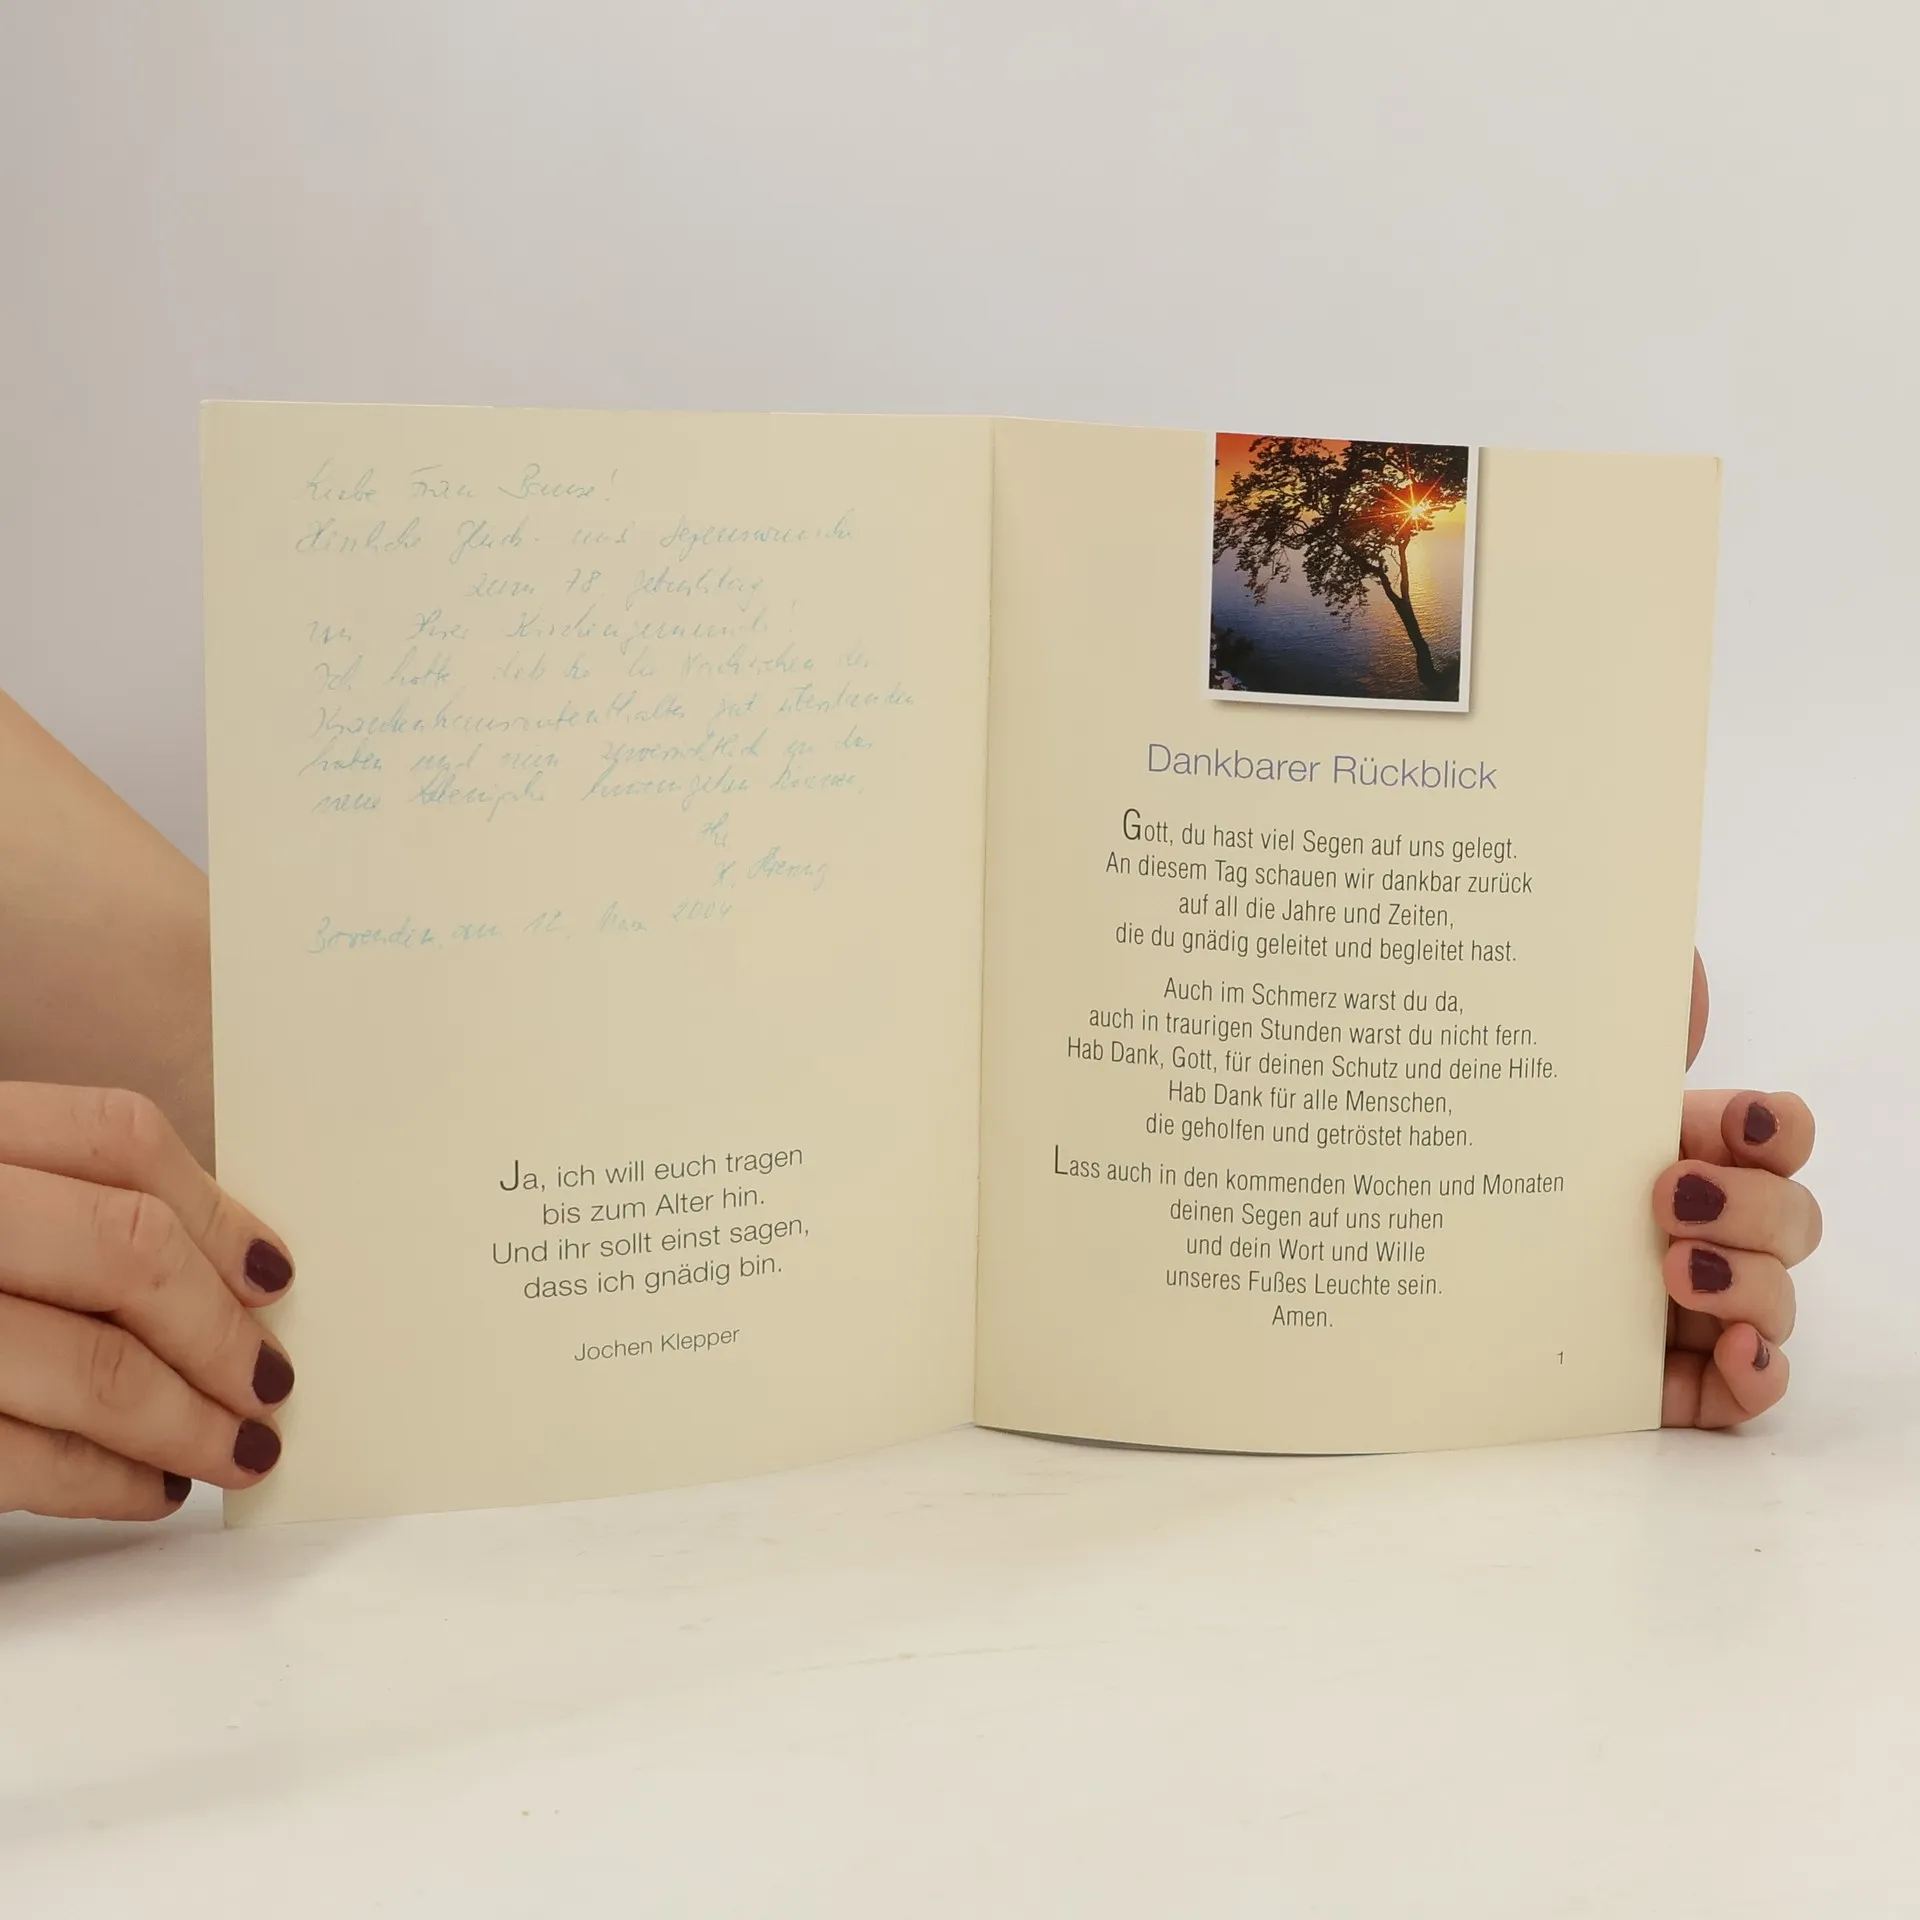 Liebe Frau
Herzliche Glück- und Segenswünsche
zum 78. Geburtstag
von Ihrer Kirchengemeinde!
Ich hoffe, daß Sie die
Krankenhausaufenthaltes gut überstanden
haben und nun zuversichtlich in das
neue Lebensjahr hineingehen können.
Ihr
Bovenden, am 12. 2004
Ja, ich will euch tragen
bis zum Alter hin.
Und ihr sollt einst sagen,
dass ich gnädig bin.
Jochen Klepper
Dankbarer Rückblick
Gott, du hast viel Segen auf uns gelegt.
An diesem Tag schauen wir dankbar zurück
auf all die Jahre und Zeiten,
die du gnädig geleitet und begleitet hast.
Auch im Schmerz warst du da,
auch in traurigen Stunden warst du nicht fern.
Hab Dank, Gott, für deinen Schutz und deine Hilfe.
Hab Dank für alle Menschen,
die geholfen und getröstet haben.
Lass auch in den kommenden Wochen und Monaten
deinen Segen auf uns ruhen
und dein Wort und Wille
unseres Fußes Leuchte sein.
Amen.
1